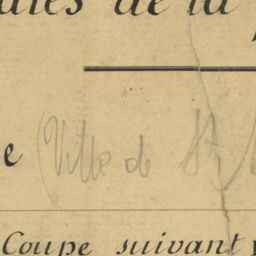 de la
e (Ville de St
Coupe suivant